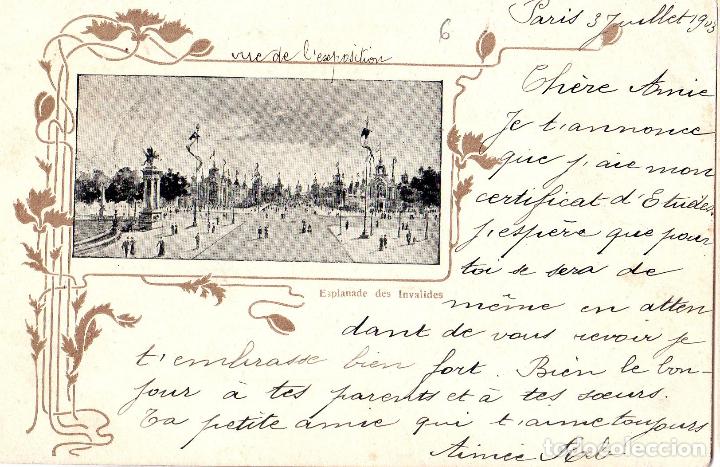 6
Paris 3 Juillet 1903
vue de l'exposition
Chère Amie
Je t'annonce
que j'aie mon
certificat d'Etudes.
J'espère que pour
toi se sera de
Esplanade des Invalides
même en atten
dant de vous revoir je
t'embrasse bien fort. Bien le bon-
jour à tes parents et à tes sœurs.
Ta petite amie qui t'aime toujours
Aimée
todocoleccion